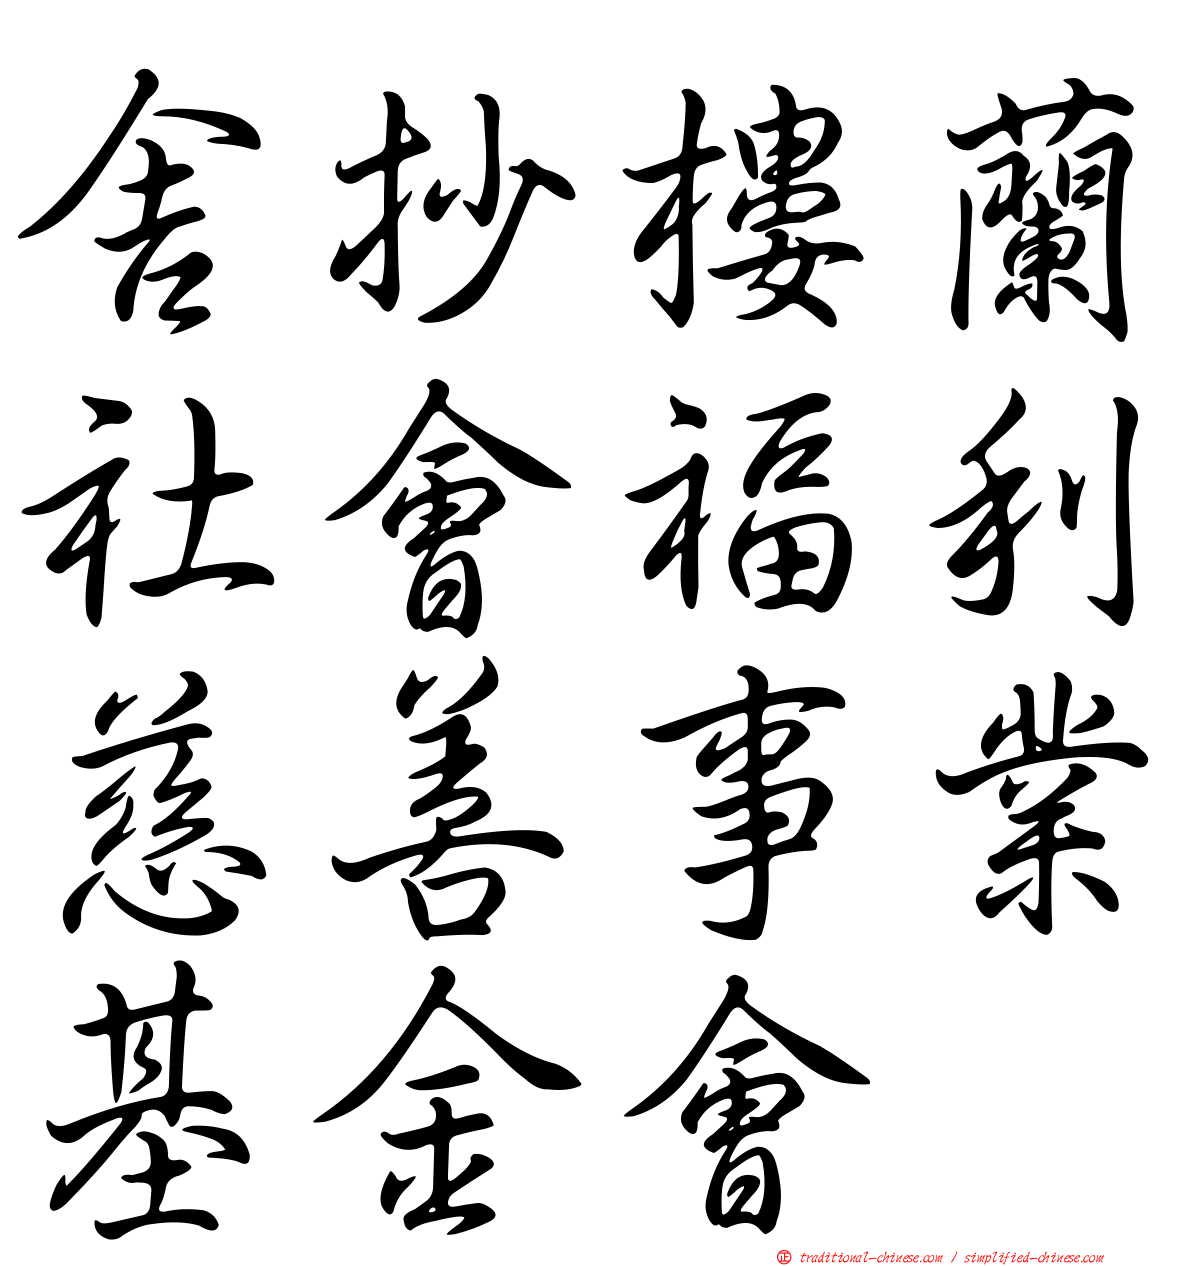 舍抄樓蘭
社會福利
慈善事業
基金會
正 traditional-chinese.com / simplified-chinese.com